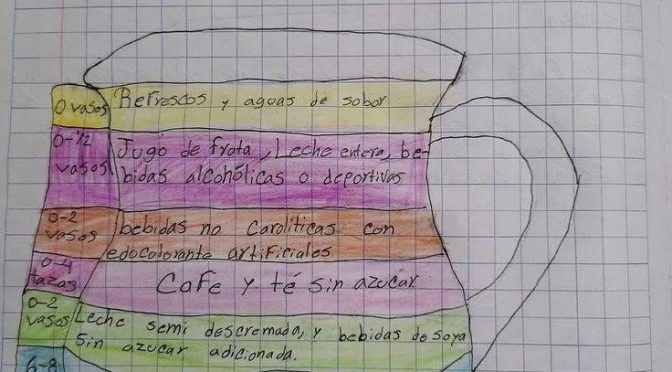 0 vasos Refrescos y aguas de sobor
0-1/2 Jugo de frota, Leche entera, be-
vasos bidas alcohólicas o deportivas
0-2 bebidas no Caroliticas con
vasos edocolorante artificiales
0-4
tazas Cafe y té sin azucar
0-2
vasos Leche semi descremada, y bebidas de soya
sin azucar adicionada.
6-8